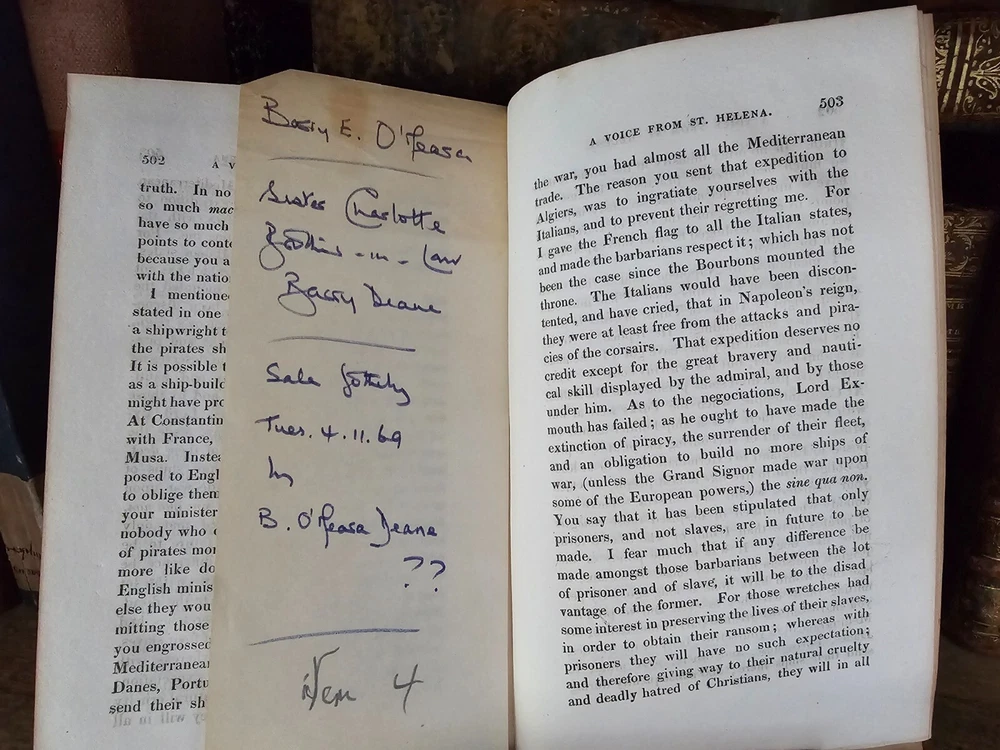 502 A V
truth. In no
so much mac
have so much
points to cont
because you a
with the natio
I mentione
stated in one
a shipwright t
the pirates sh
It is possible t
as a ship-build
might have pro
At Constantin
with France,
Musa. Instea
posed to Engl
to oblige them
your minister
nobody who c
of pirates mor
more like do
English minis
else they wou
mitting those
you engrossed
Mediterranean
Danes, Portu
send their sh
Barry E. O'Meara
Sister Charlotte
Brother-in-Law
Barry Deane
Sale Sotheby
Tues. 4.11.69
by
B. O'Meara Deane
??
Item 4
503
A VOICE FROM ST. HELENA.
the war, you had almost all the Mediterranean
trade. The reason you sent that expedition to
Algiers, was to ingratiate yourselves with the
Italians, and to prevent their regretting me. For
I gave the French flag to all the Italian states,
and made the barbarians respect it; which has not
been the case since the Bourbons mounted the
throne. The Italians would have been discon-
tented, and have cried, that in Napoleon's reign,
they were at least free from the attacks and pira-
cies of the corsairs. That expedition deserves no
credit except for the great bravery and nauti-
cal skill displayed by the admiral, and by those
under him. As to the negociations, Lord Ex-
mouth has failed; as he ought to have made the
extinction of piracy, the surrender of their fleet,
and an obligation to build no more ships of
war, (unless the Grand Signor made war upon
some of the European powers,) the sine qua non.
You say that it has been stipulated that only
prisoners, and not slaves, are in future to be
made. I fear much that if any difference be
made amongst those barbarians between the lot
of prisoner and of slave, it will be to the disad
vantage of the former. For those wretches had
some interest in preserving the lives of their slaves,
in order to obtain their ransom; whereas with
prisoners they will have no such expectation;
and therefore giving way to their natural cruelty
and deadly hatred of Christians, they will in all